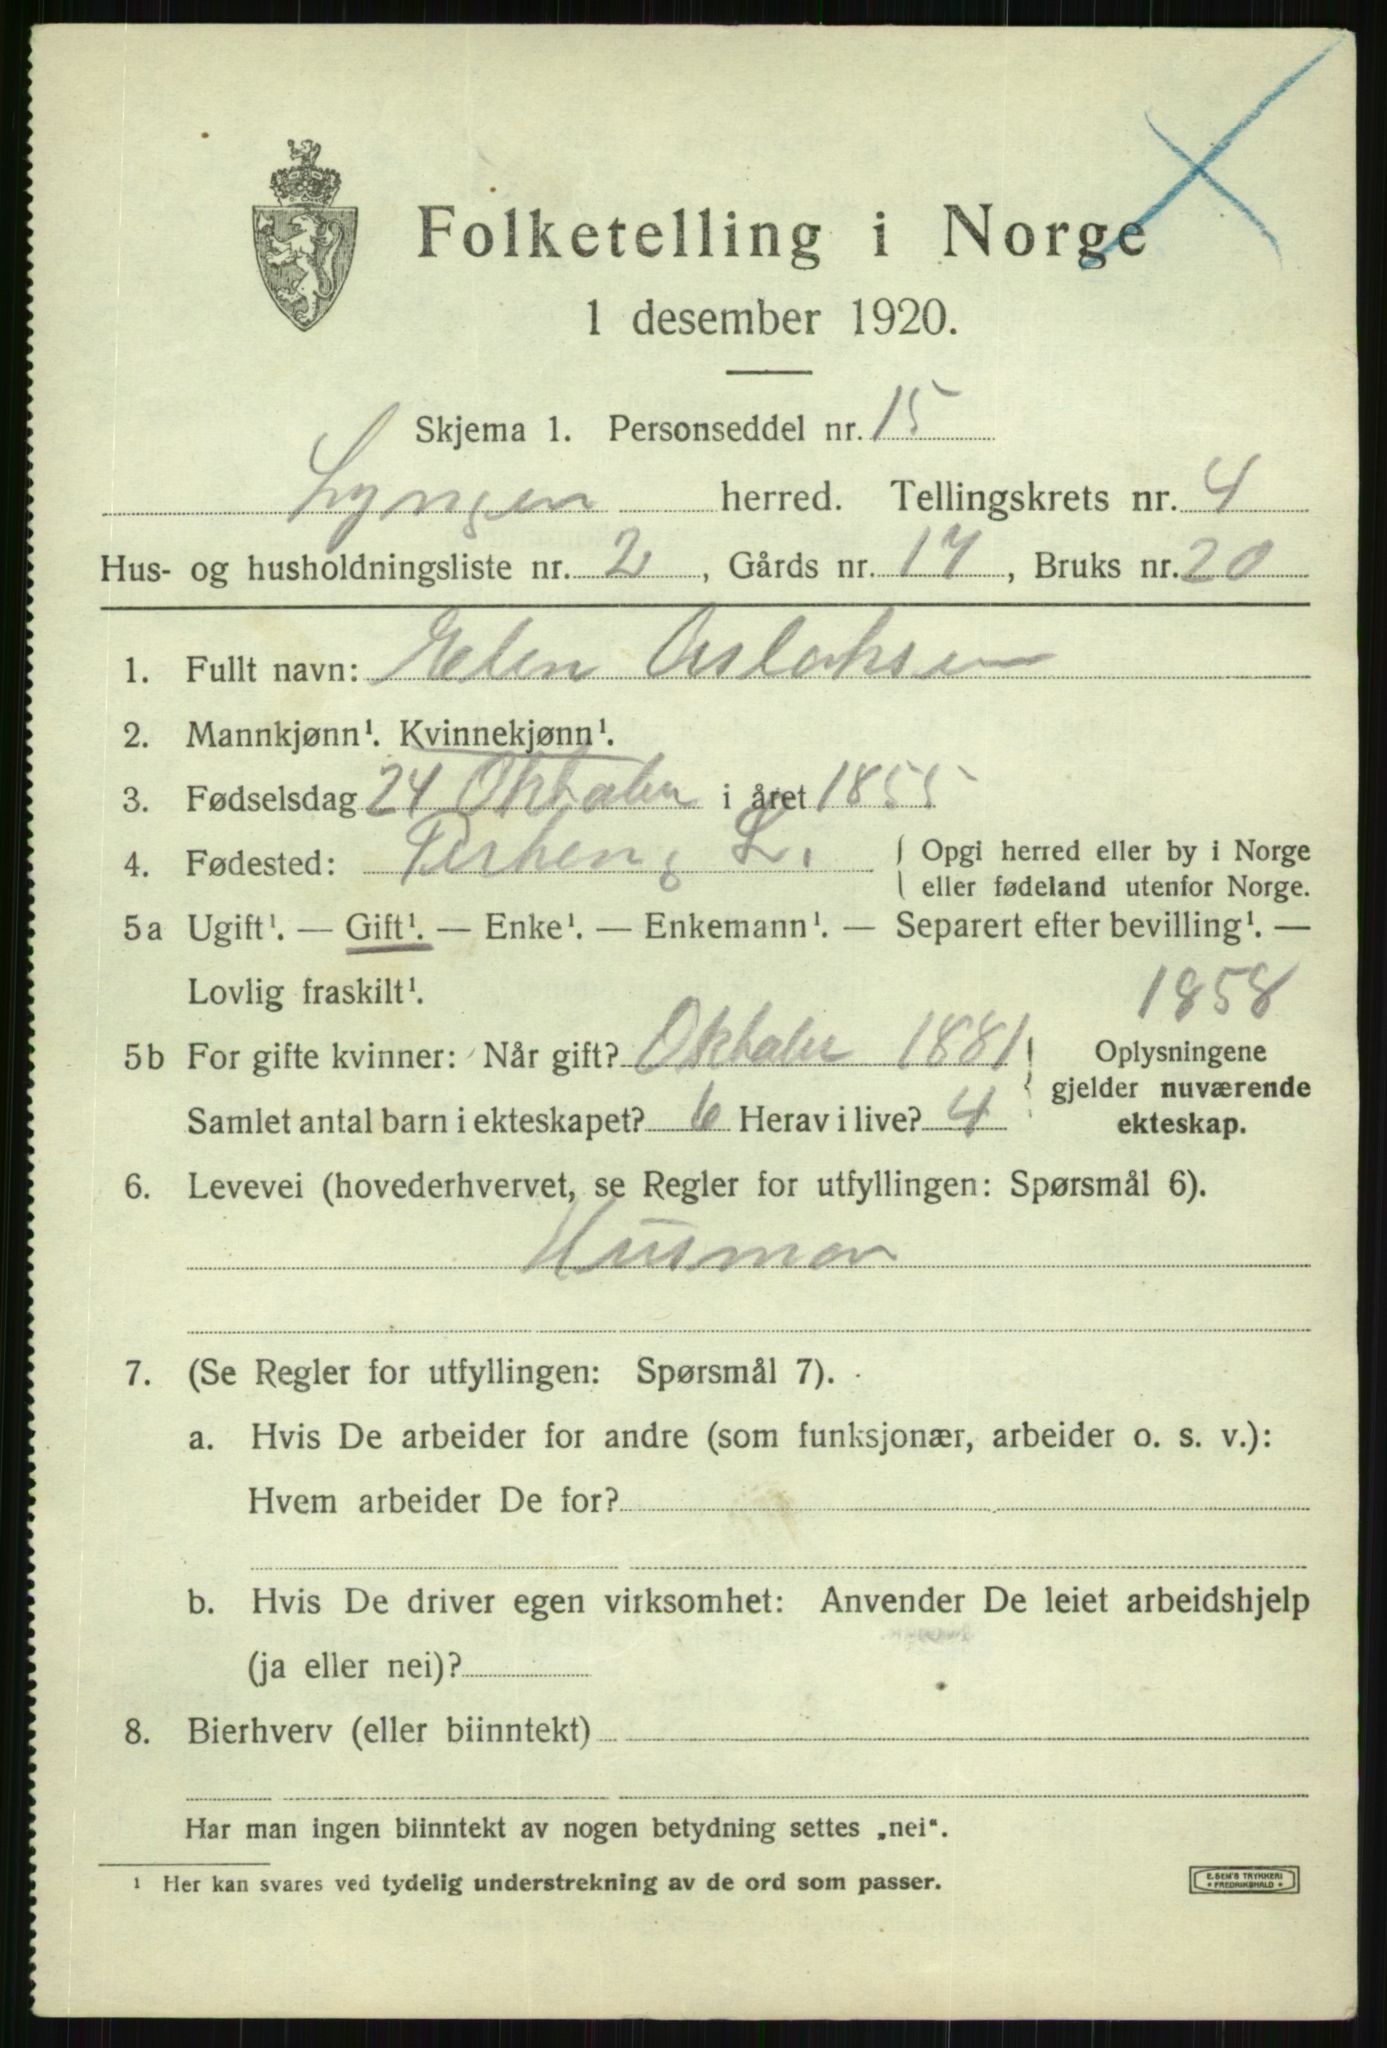 Folketelling i Norge
1 desember 1920.
Skjema 1. Personseddel nr. 15
Lyngen herred. Tellingskrets nr. 4
Hus- og husholdningsliste nr. 2, Gårds nr. 17, Bruks nr. 20
1. Fullt navn: Elen Aslaksen
2. Mannkjønn¹. Kvinnekjønn¹.
3. Fødselsdag 24 Oktober i året 1855
4. Fødested: L. { Opgi herred eller by i Norge
eller fødeland utenfor Norge.
5a Ugift¹. — Gift¹. — Enke¹. — Enkemann¹. — Separert efter bevilling¹. —
Lovlig fraskilt¹.
1858
5b For gifte kvinner: Når gift? Oktober 1881 } Oplysningene
gjelder nuværende
Samlet antal barn i ekteskapet? 6 Herav i live? 4
ekteskap.
6. Levevei (hovederhvervet, se Regler for utfyllingen: Spørsmål 6).
Husmor
7. (Se Regler for utfyllingen: Spørsmål 7).
a. Hvis De arbeider for andre (som funksjonær, arbeider o. s. v.):
Hvem arbeider De for?
b. Hvis De driver egen virksomhet: Anvender De leiet arbeidshjelp
(ja eller nei)?
8. Bierhverv (eller biinntekt)
Har man ingen biinntekt av nogen betydning settes „nei“.
¹ Her kan svares ved tydelig understrekning av de ord som passer.
E. SEM'S TRYKKERI
* FREDRIKSHALD *